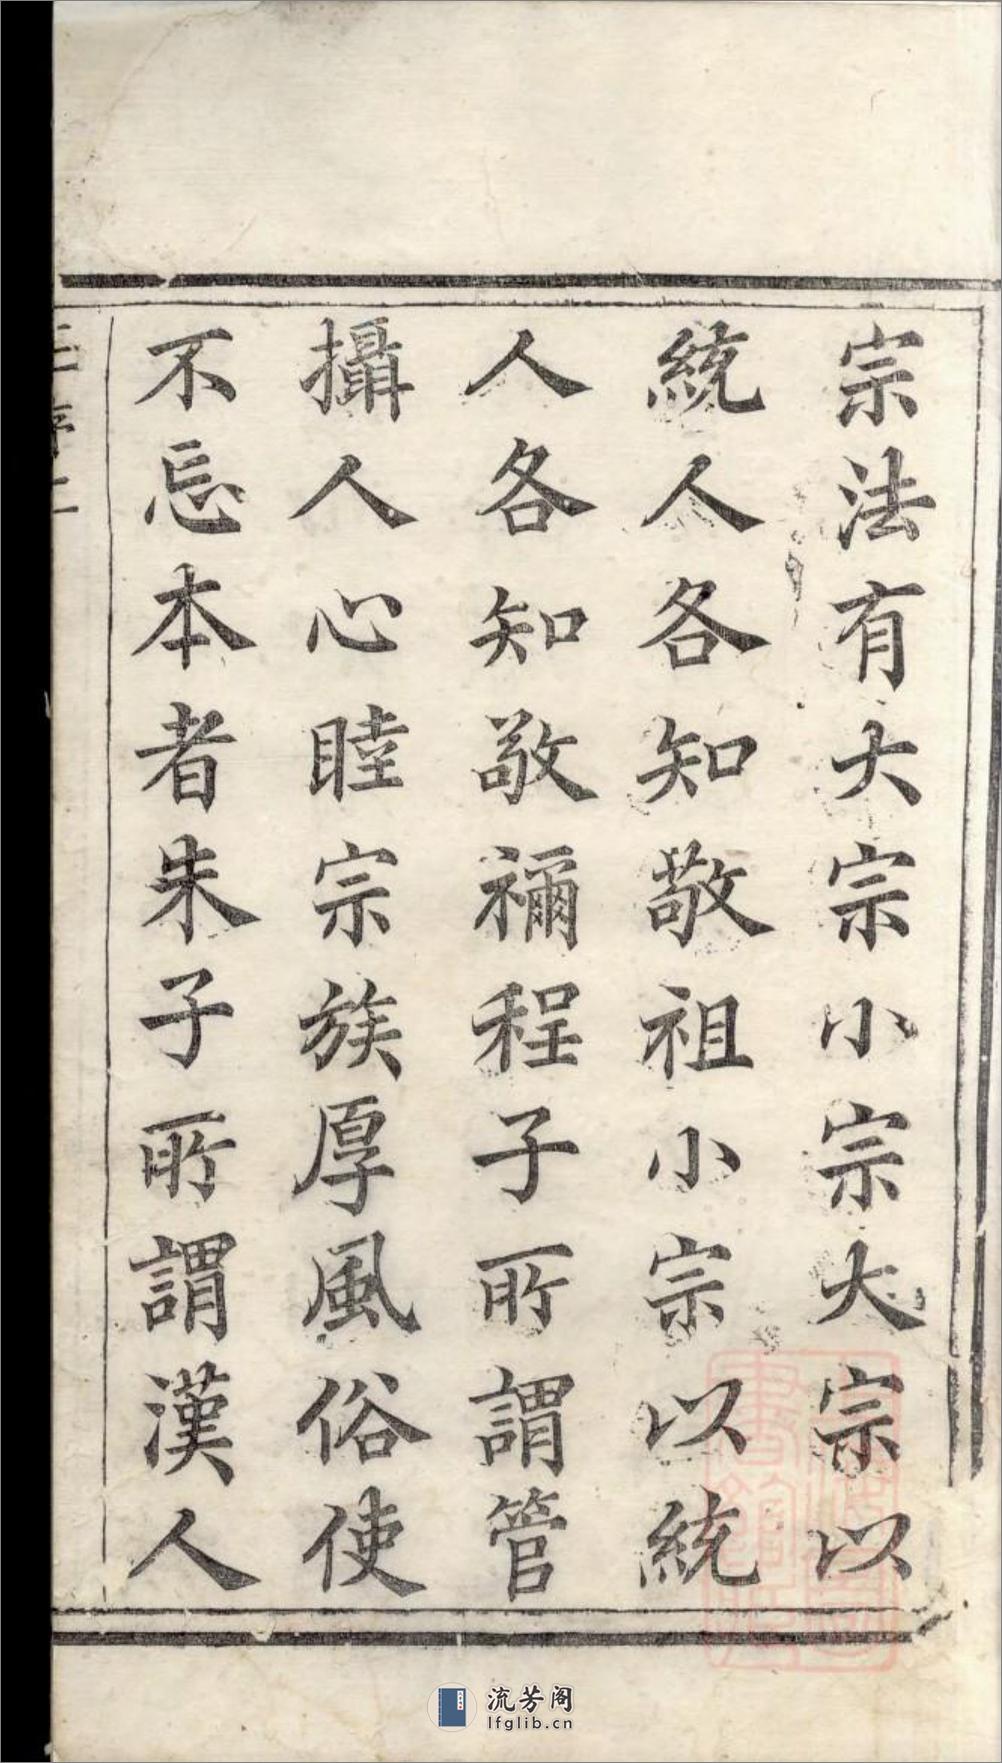 宗法有大宗小宗大宗以
統人各知敬祖小宗以統
人各知敬禰程子所謂管
攝人心睦宗族厚風俗使
不忘本者朱子所謂漢人
流芳阁
lfglib.cn